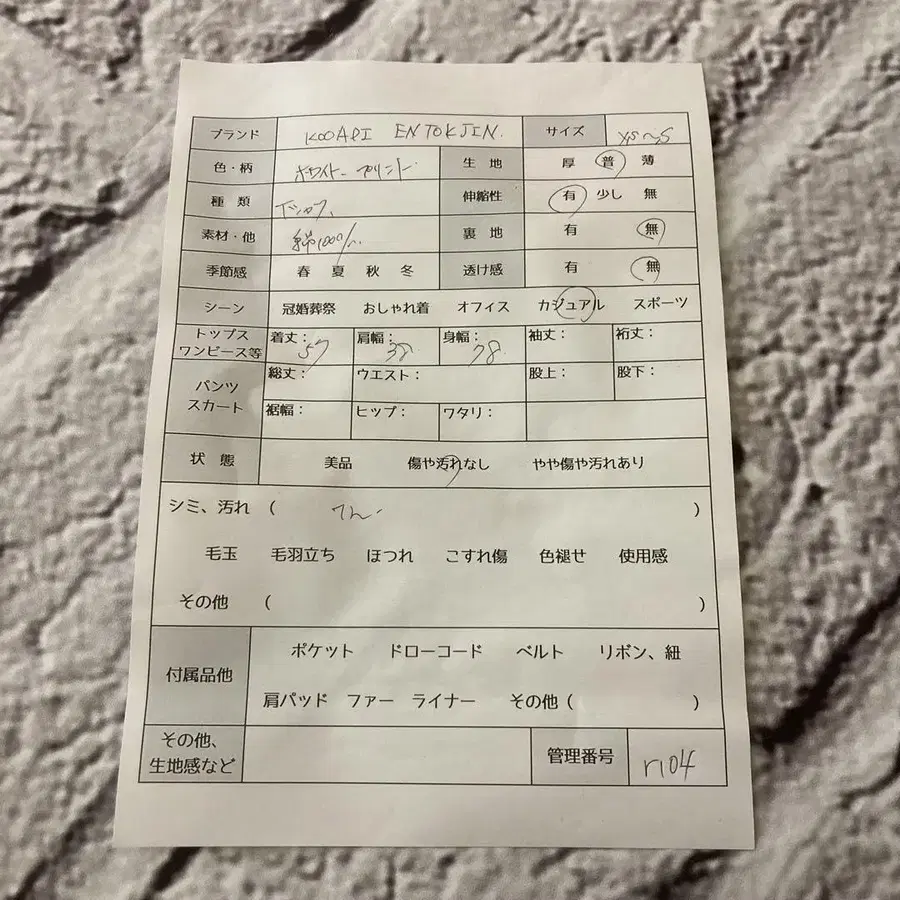 ブランド KOOAPI ENTOKJIN. サイズ XS〜S
色・柄 ホワイト プリント 生 地 厚 普 薄
種 類 Tシャツ 伸縮性 有 少し 無
素材・他 綿100% 裏 地 有 無
季節感 春 夏 秋 冬 透け感 有 無
シーン 冠婚葬祭 おしゃれ着 オフィス カジュアル スポーツ
トップス ワンピース等 着丈: 57 肩幅: 38 身幅: 78 袖丈: 裄丈:
パンツ スカート 総丈: ウエスト: 股上: 股下:
裾幅: ヒップ: ワタリ:
状 態 美品 傷や汚れなし やや傷や汚れあり
シミ、汚れ ( )
毛玉 毛羽立ち ほつれ こすれ傷 色褪せ 使用感
その他 ( )
付属品他 ポケット ドローコード ベルト リボン、紐
肩パッド ファー ライナー その他 ( )
その他、 生地感など 管理番号 r104